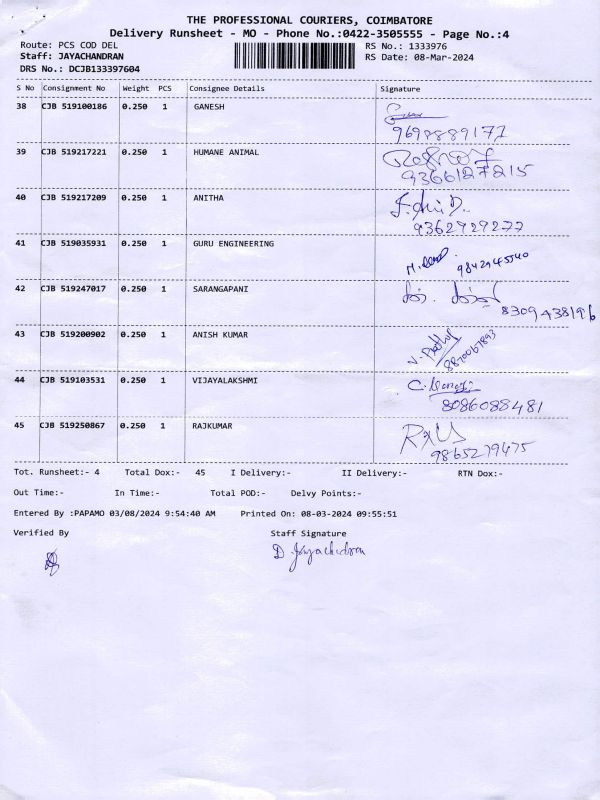 THE PROFESSIONAL COURIERS, COIMBATORE
Delivery Runsheet - MO - Phone No.:0422-3505555 - Page No.:4
Route: PCS COD DEL RS No.: 1333976
Staff: JAYACHANDRAN RS Date: 08-Mar-2024
DRS No.: DCJB133397604
S No Consignment No Weight PCS Consignee Details Signature
38 CJB 519100186 0.250 1 GANESH
9698889177
39 CJB 519217221 0.250 1 HUMANE ANIMAL
9366127215
40 CJB 519217209 0.250 1 ANITHA
9362929277
41 CJB 519035931 0.250 1 GURU ENGINEERING
9842945540
42 CJB 519247017 0.250 1 SARANGAPANI
8309438196
43 CJB 519200902 0.250 1 ANISH KUMAR
8870067893
44 CJB 519103531 0.250 1 VIJAYALAKSHMI
8086088481
45 CJB 519250867 0.250 1 RAJKUMAR
9865279475
Tot. Runsheet:- 4 Total Dox:- 45 I Delivery:- II Delivery:- RTN Dox:-
Out Time:- In Time:- Total POD:- Delvy Points:-
Entered By :PAPAMO 03/08/2024 9:54:40 AM Printed On: 08-03-2024 09:55:51
Verified By Staff Signature
D. Jayachandran